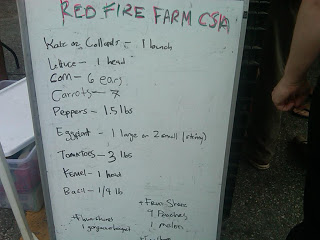 RED FIRE FARM CSA
Kale or Collards - 1 bunch
Lettuce - 1 head
Corn - 6 ears
Carrots - 7
Peppers - 1.5 lbs
Eggplant - 1 large or 2 small (string)
Tomatoes - 3 lbs
Fennel - 1 head
Basil - 1/4 lb
+ Fruit Share
9 Peaches
1 melon
+ Flower shares
1 gorgeous bouquet